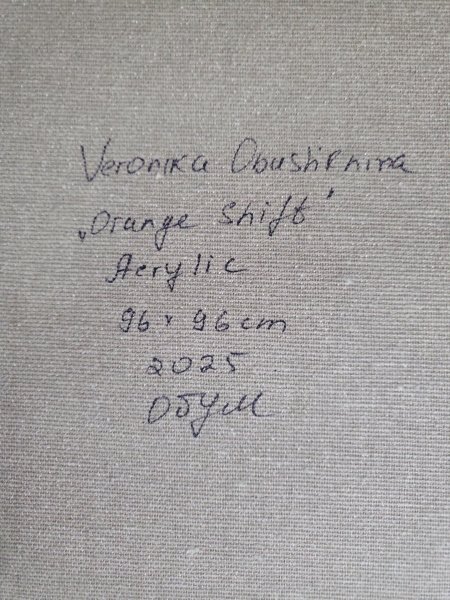 Veronika Obushipnina
„Orange Shift"
Acrylic
96 x 96 cm
2025
Обум